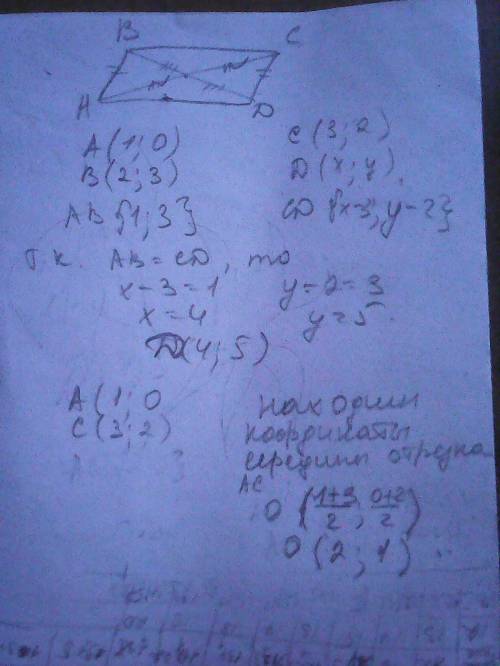 B C
A D
A(1;0) C(3;2)
B(2;3) D(x;y).
AB{1;3} CD{x-3;y-2}
т.к. AB=CD, то
x-3=1 y-2=3
x=4 y=5.
D(4;5)
A(1;0
C(3;2)
находим
координаты
середины отрезка
AC
O(1+3/2; 0+2/2)
O(2;1)